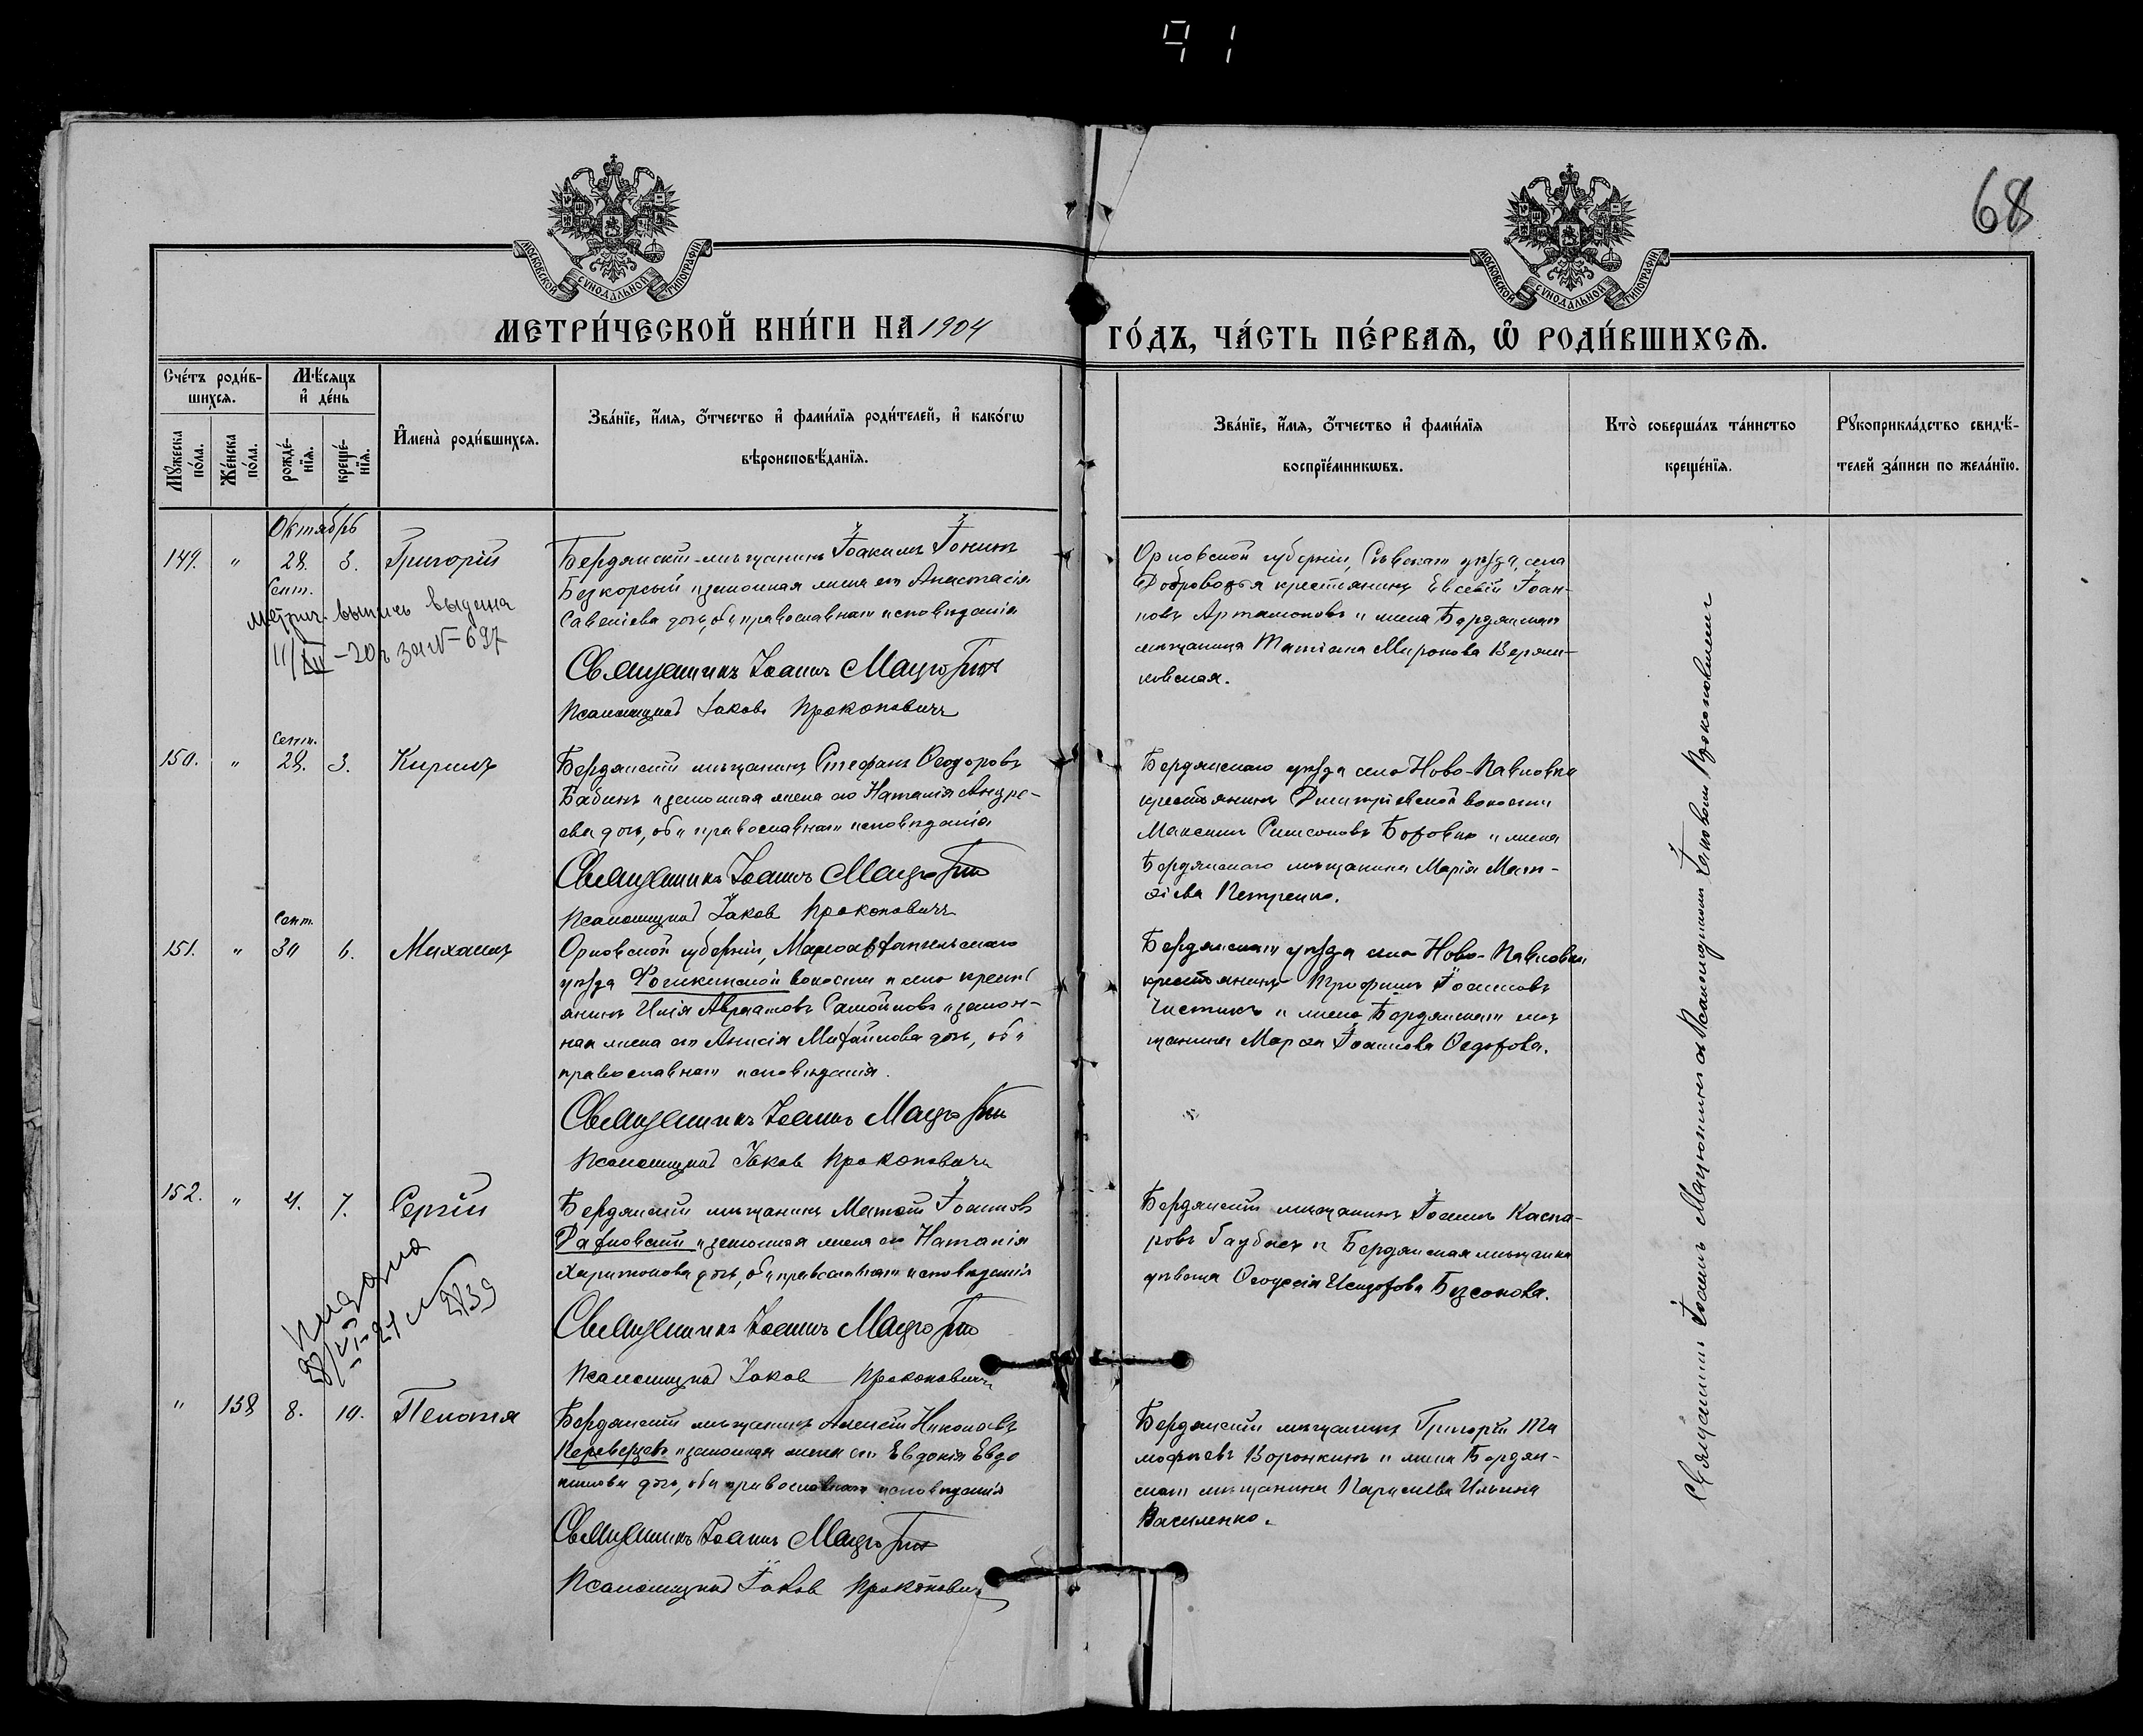 91
68
МОСКОВСКОЙ СѴНОДАЛЬНОЙ ТИПОГРАФІИ
МОСКОВСКОЙ СѴНОДАЛЬНОЙ ТИПОГРАФІИ
МЕТРИ́ЧЕСКОЙ КНИ́ГИ НА 1904
ГО́ДЪ, ЧА́СТЬ ПЕ́РВАѦ, Ѽ РОДИ́ВШИХСѦ.
Сче́тъ роди́в-
шихсѧ.
Мꙋжеска
по́ла.
Же́нска
по́ла.
Мѣ́сѧцъ
и҆ де́нь
рожде́-
нїѧ.
креще́-
нїѧ.
И҆мена̀ роди́вшихсѧ.
Зва́нїе, и҆́мѧ, ѻ҆́тчество и҆ фами́лїѧ роди́телей, и҆ како́гѡ
вѣроисповѣ́данїѧ.
Зва́нїе, и҆́мѧ, ѻ҆́тчество и҆ фами́лїѧ
воспрїе́мникѡвъ.
Кто̀ соверша́лъ та́инство
креще́нїѧ.
Рꙋкоприкла́дство свидѣ́-
телей за́писи по жела́нїю.
Октябрь
149. " 28. 3. Григорій
Сент.
метрич. выпись выдана
11/XII – 20 г за № – 697
Бердянскій мѣщанинъ Іоакимъ
Безкорсый и законная жена его Анастасія
Савеліева дочь, оба православнаго исповѣданія
Священникъ Іоаннъ
Псаломщикъ Іаковъ Прокоповичъ
Орловской губерніи, Сѣвскаго уѣзда, села
Доброводья крестьянинъ Евсевій Іоан-
новъ Артамоновъ и жена Бердянскаго
мѣщанина Татіана Миронова
ковская.
Сент.
150. " 28. 3. Кириллъ
Бердянскій мѣщанинъ Стефанъ Ѳеодоровъ
Бабинъ и законная жена его Наталія Андре-
ева дочь, оба православнаго исповѣданія
Священникъ Іоаннъ
Псаломщикъ Іаковъ Прокоповичъ
Бердянскаго уѣзда села Ново-Павловки
крестьянинъ Дмитріевской волости
Максимъ Симоновъ Боровко и жена
Бердянскаго мѣщанина Марія Мат-
ѳіева Петренко.
Сент.
151. " 30 6. Михаилъ
Орловской губерніи, Малоархангельскаго
уѣзда волости и села крест
янинъ Илія Авраамовъ Самойловъ и закон-
ная жена его Анисія Михайлова дочь, оба
православнаго исповѣданія.
Священникъ Іоаннъ
Псаломщикъ Іаковъ Прокоповичъ
Бердянскаго уѣзда села Ново-Павловки
крестьянинъ Трофимъ Іоанновъ
Чистикъ и жена Бердянскаго мѣ
щанина Марѳа Іоаннова Ѳедорова.
152. " 4. 7. Сергій
выдана
28/VI–24 № 2139
Бердянскій мѣщанинъ Матѳій Іоанновъ
и законная жена его Наталія
Харитонова дочь, оба православнаго исповѣданія
Священникъ Іоаннъ
Псаломщикъ Іаковъ Прокоповичъ
Бердянскій мѣщанинъ Іоаннъ Каспа-
ровъ Гаубнеръ и Бердянская мѣщанка
дѣвица Ѳеодосія Исидорова Безсонова.
" 138 8. 10. Пелагія
Бердянскій мѣщанинъ Алексій Николаевъ
Переверзевъ и законная жена его Евдокія Евдо
кимова дочь, оба православнаго исповѣданія
Священникъ Іоаннъ
Псаломщикъ Іаковъ Прокоповичъ
Бердянскій мѣщанинъ Григорій Ти
моѳеевъ Воронкинъ и жена Бердян-
скаго мѣщанина Параскева Ильина
Василенко.
Священникъ Іоаннъ съ Псаломщикомъ Іаковомъ Прокоповичемъ